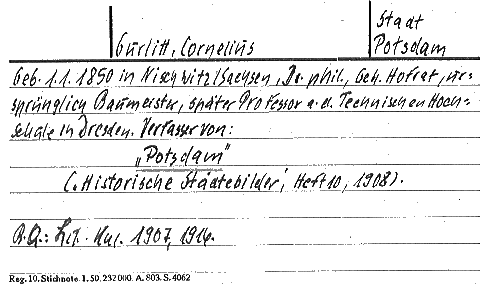 Gurlitt, Cornelius
Staat
Potsdam
Geb. 1.1. 1850 in Nischwitz/Sachsen, Dr. phil., Geh. Hofrat, ur-
sprünglich Baumeister, später Professor a.d. Technischen Hoch-
schule in Dresden. Verfasser von:
„Potsdam"
(„Historische Städtebilder', Heft 10, 1908).
Lit. 1907, 1914.
Reg. 10. Stichnote. 1. 50. 232000. A. 803. S. 4062